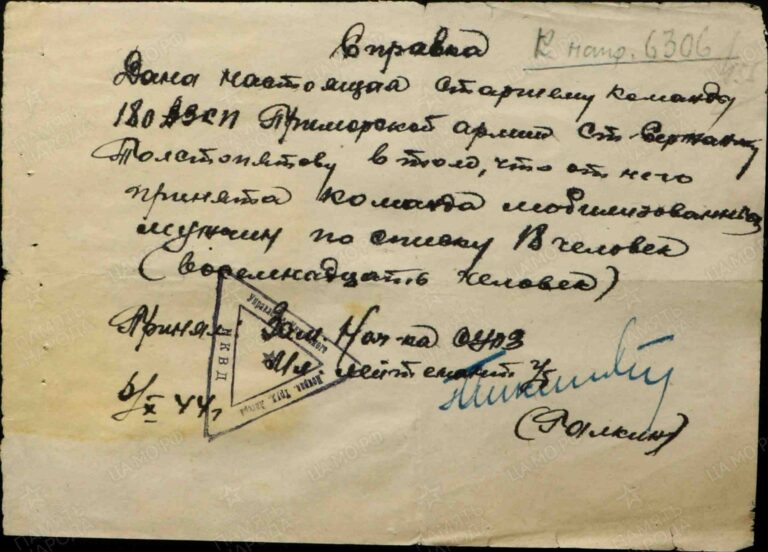 Справка
К напр. 6306
Дана настоящая старшему команды
180 АЗСП Приморской армии ст. сержанту
Толстопятову в том, что от него
принята команда мобилизованных
мужчин по списку 18 человек
(восемнадцать человек)
Принял: Зам. Нач-ка
Мл. лейтенант г/б
НКВД
6/X 44 г.
(Галкин)